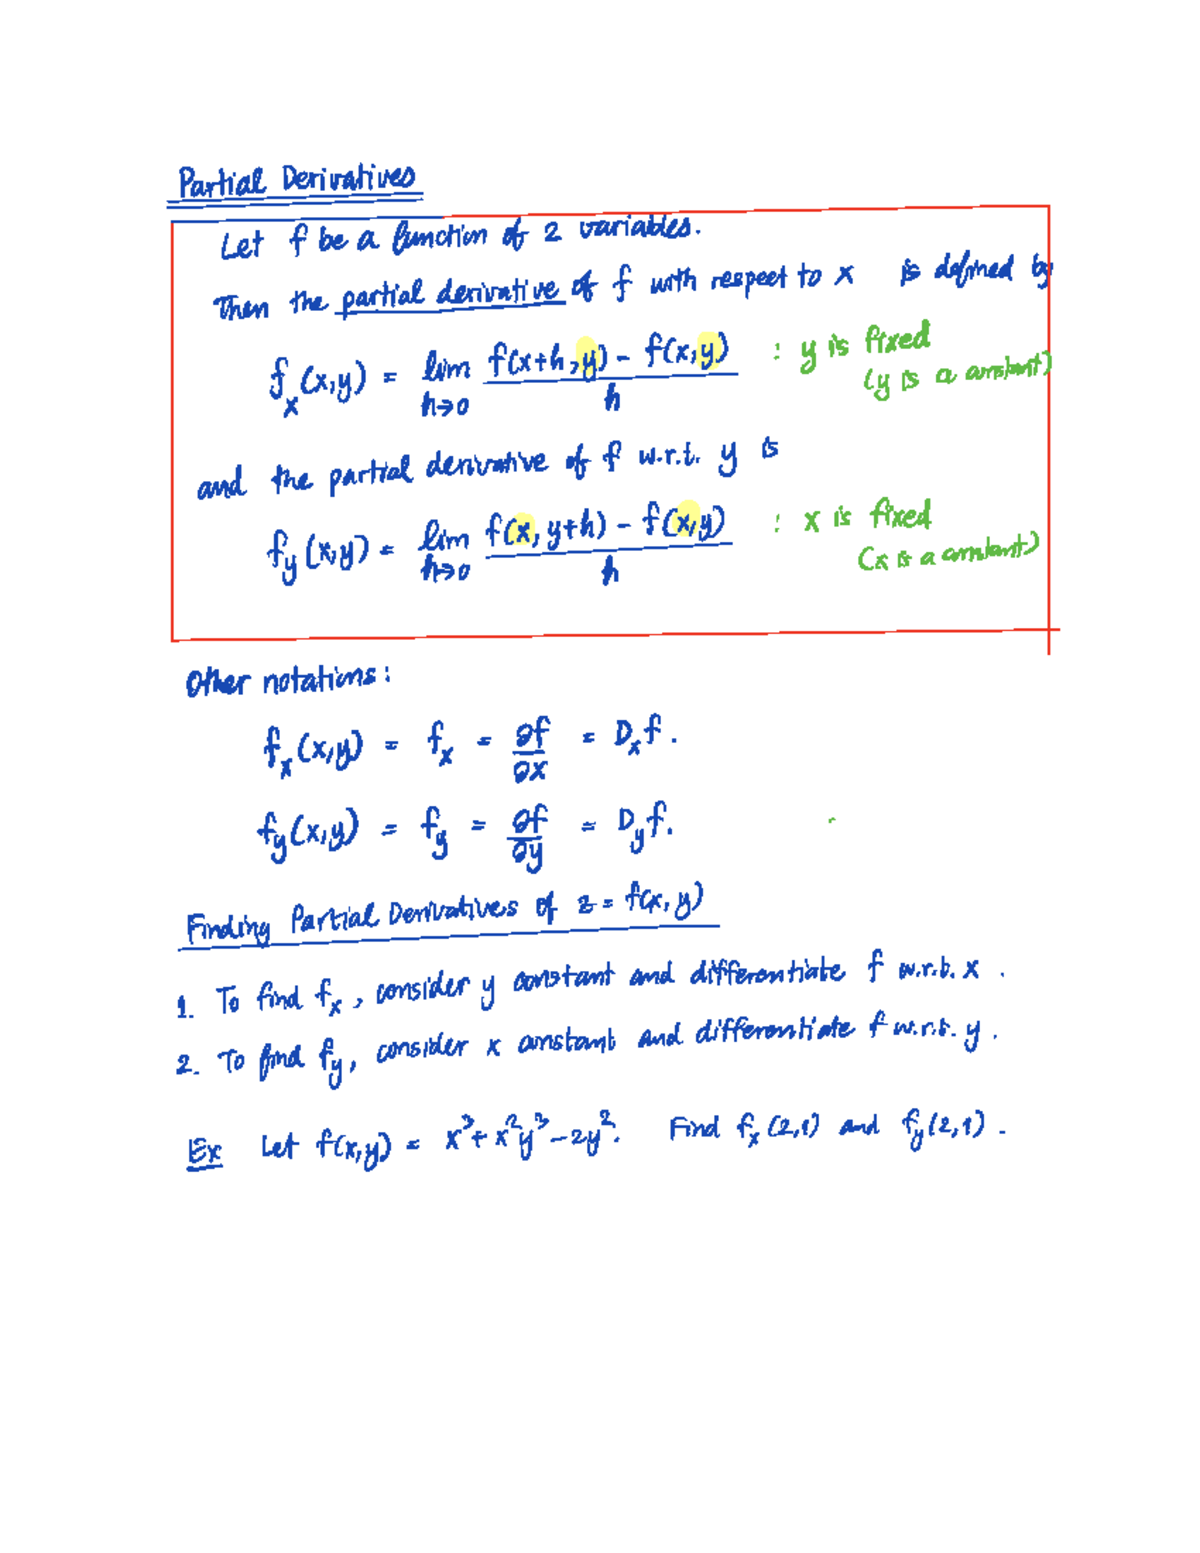 Partial Derivatives
Let f be a function of 2 variables.
Then the partial derivative of f with respect to x is defined by
f_x(x,y) = lim_{h→0} (f(x+h,y) - f(x,y))/h : y is fixed
(y is a constant)
and the partial derivative of f w.r.t. y is
f_y(x,y) = lim_{h→0} (f(x,y+h) - f(x,y))/h : x is fixed
(x is a constant)
Other notations:
f_x(x,y) = f_x = ∂f/∂x = D_x f.
f_y(x,y) = f_y = ∂f/∂y = D_y f.
Finding Partial Derivatives of z = f(x,y)
1. To find f_x, consider y constant and differentiate f w.r.t. x.
2. To find f_y, consider x constant and differentiate f w.r.t. y.
Ex Let f(x,y) = x³ + x²y³ - 2y². Find f_x(2,1) and f_y(2,1).